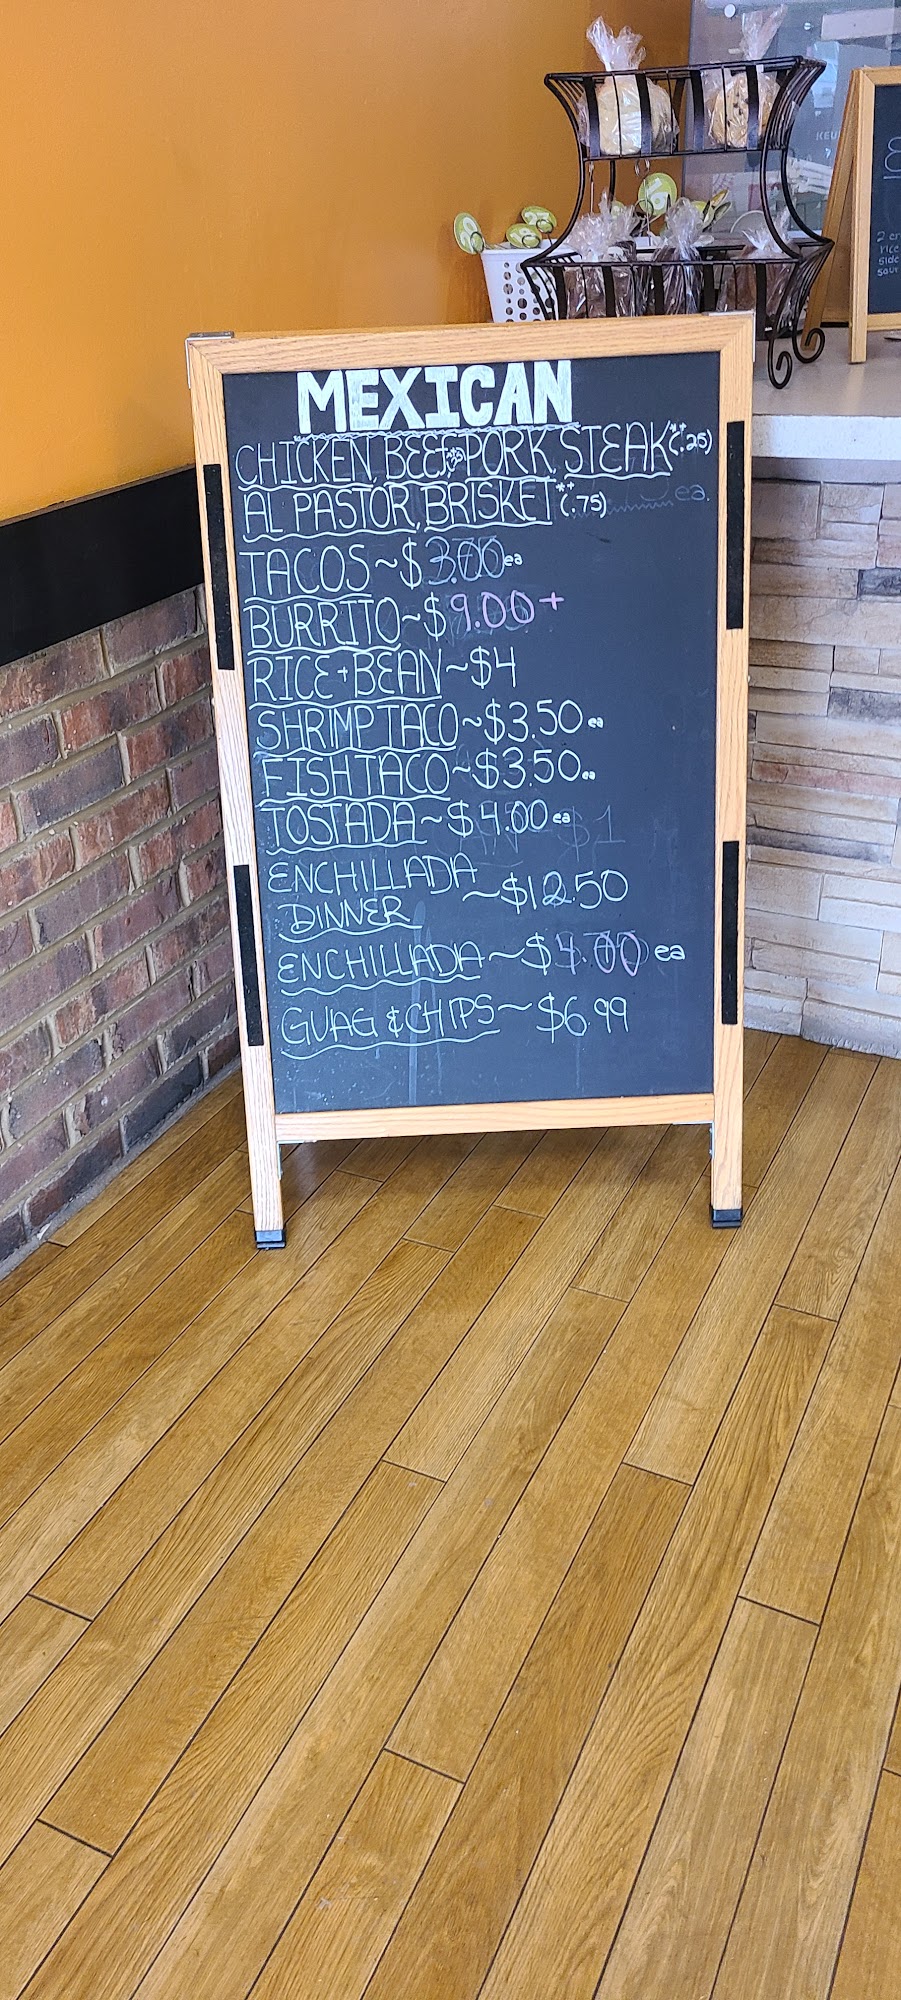 MEXICAN
CHICKEN, BEEF, PORK, STEAK**(.25)
AL PASTOR, BRISKET**(.75)
TACOS~$3.00ea
BURRITO~$9.00+
RICE+BEAN~$4
SHRIMP TACO~$3.50ea
FISH TACO~$3.50ea
TOSTADA~$4.00ea
ENCHILLADA
DINNER ~$12.50
ENCHILLADA~$4.00 ea
GUAG & CHIPS~$6.99
2 en
rice
side
sour